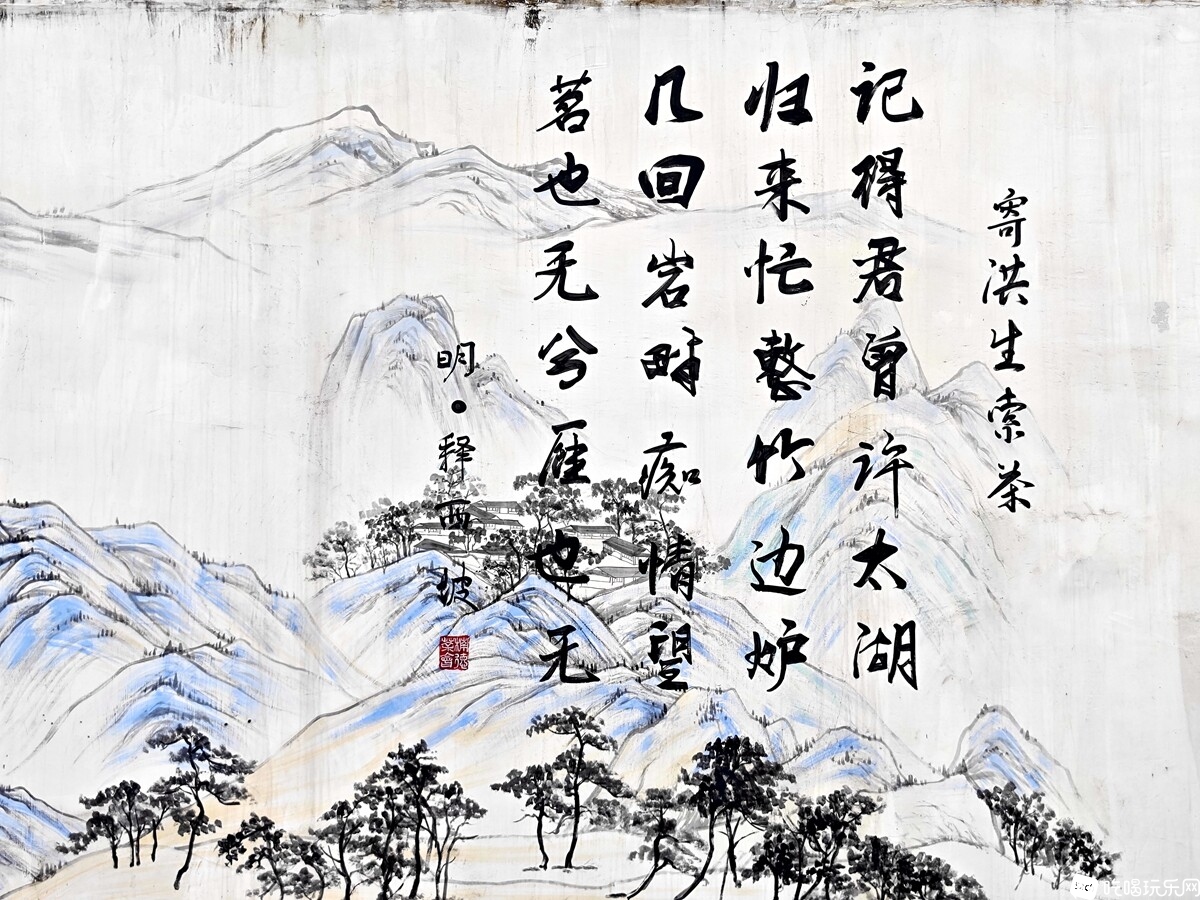 寄洪生索茶
记得君曾许太湖
归来忙整竹边炉
几回岩畔痴情望
茗也无兮雁也无
明·释西坡
吃喝玩乐网